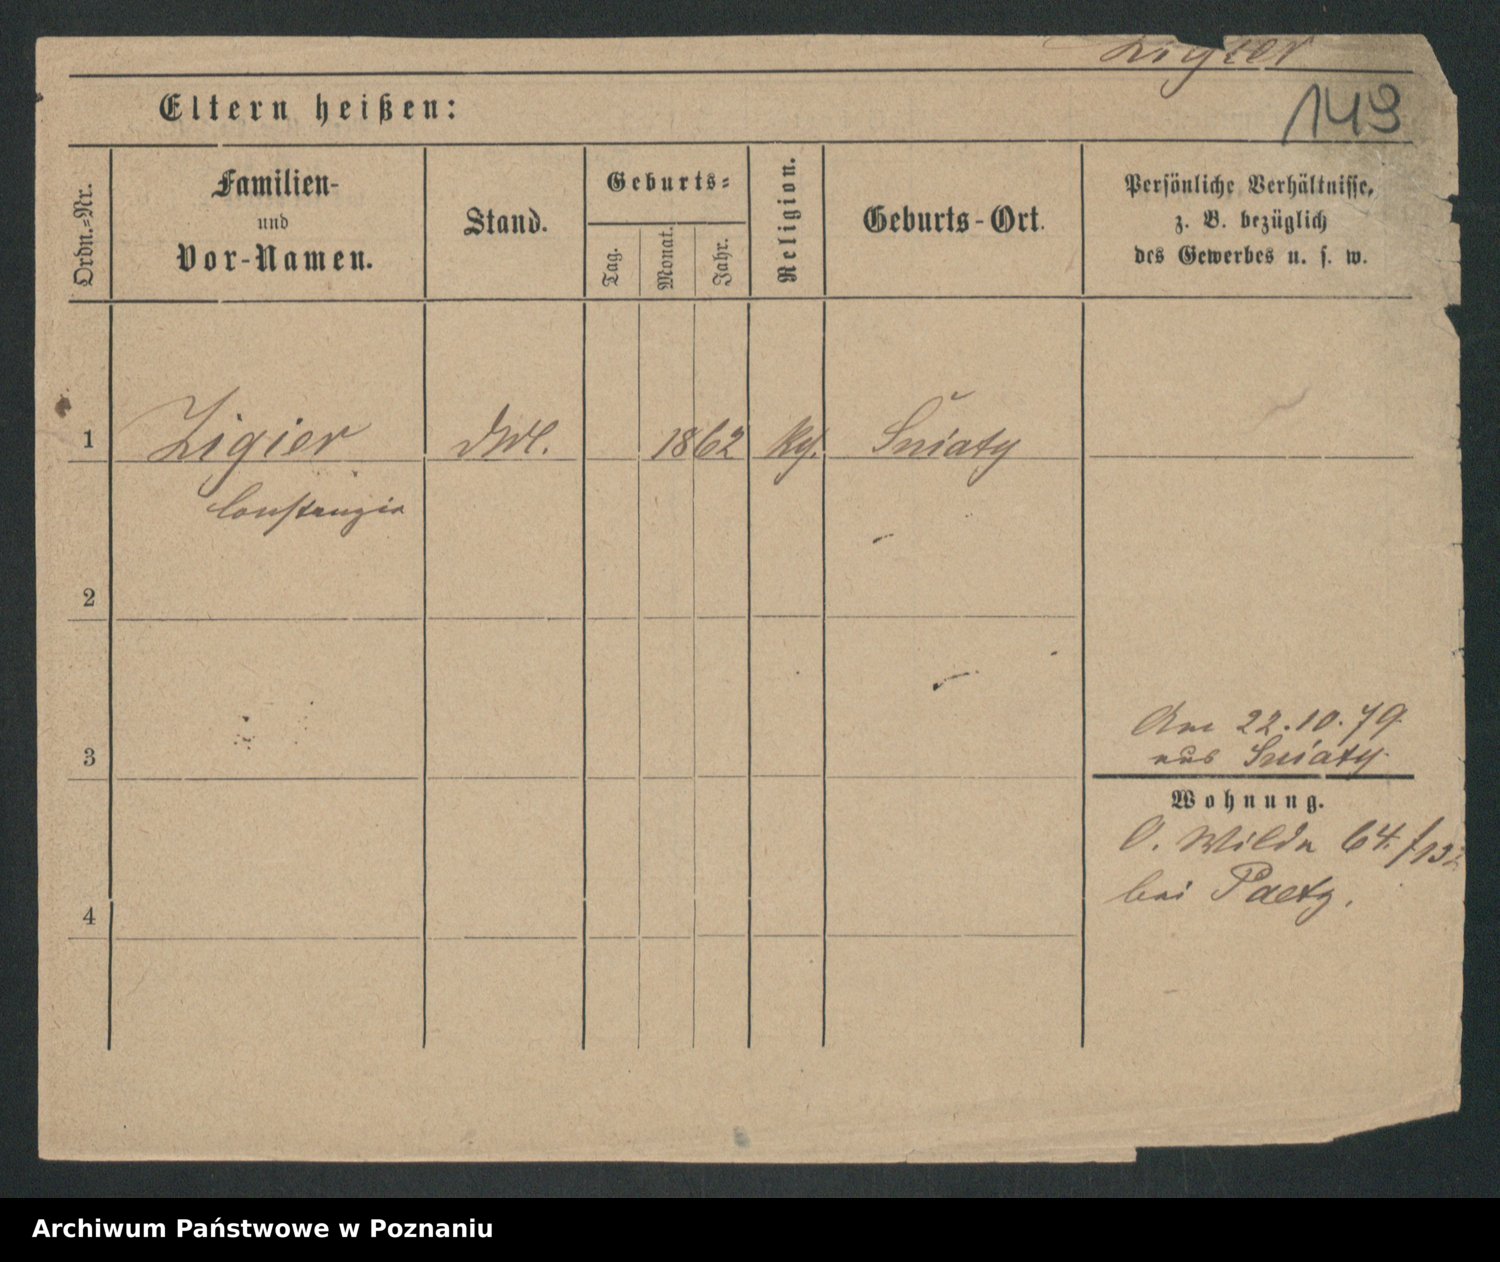 Zigier
149
Eltern heißen:
Ordn.-Nr.
Familien-
und
Vor-Namen.
Stand.
Geburts-
Tag.
Monat.
Jahr.
Religion.
Geburts-Ort.
Persönliche Verhältnisse,
z. B. bezüglich
des Gewerbes u. s. w.
1 Zigier 1862 Sniaty
Constanzia
2
Am 22.10.79
3 aus Sniaty
Wohnung.
O. Wilda 64./
bei Paetz.
4
Archiwum Państwowe w Poznaniu